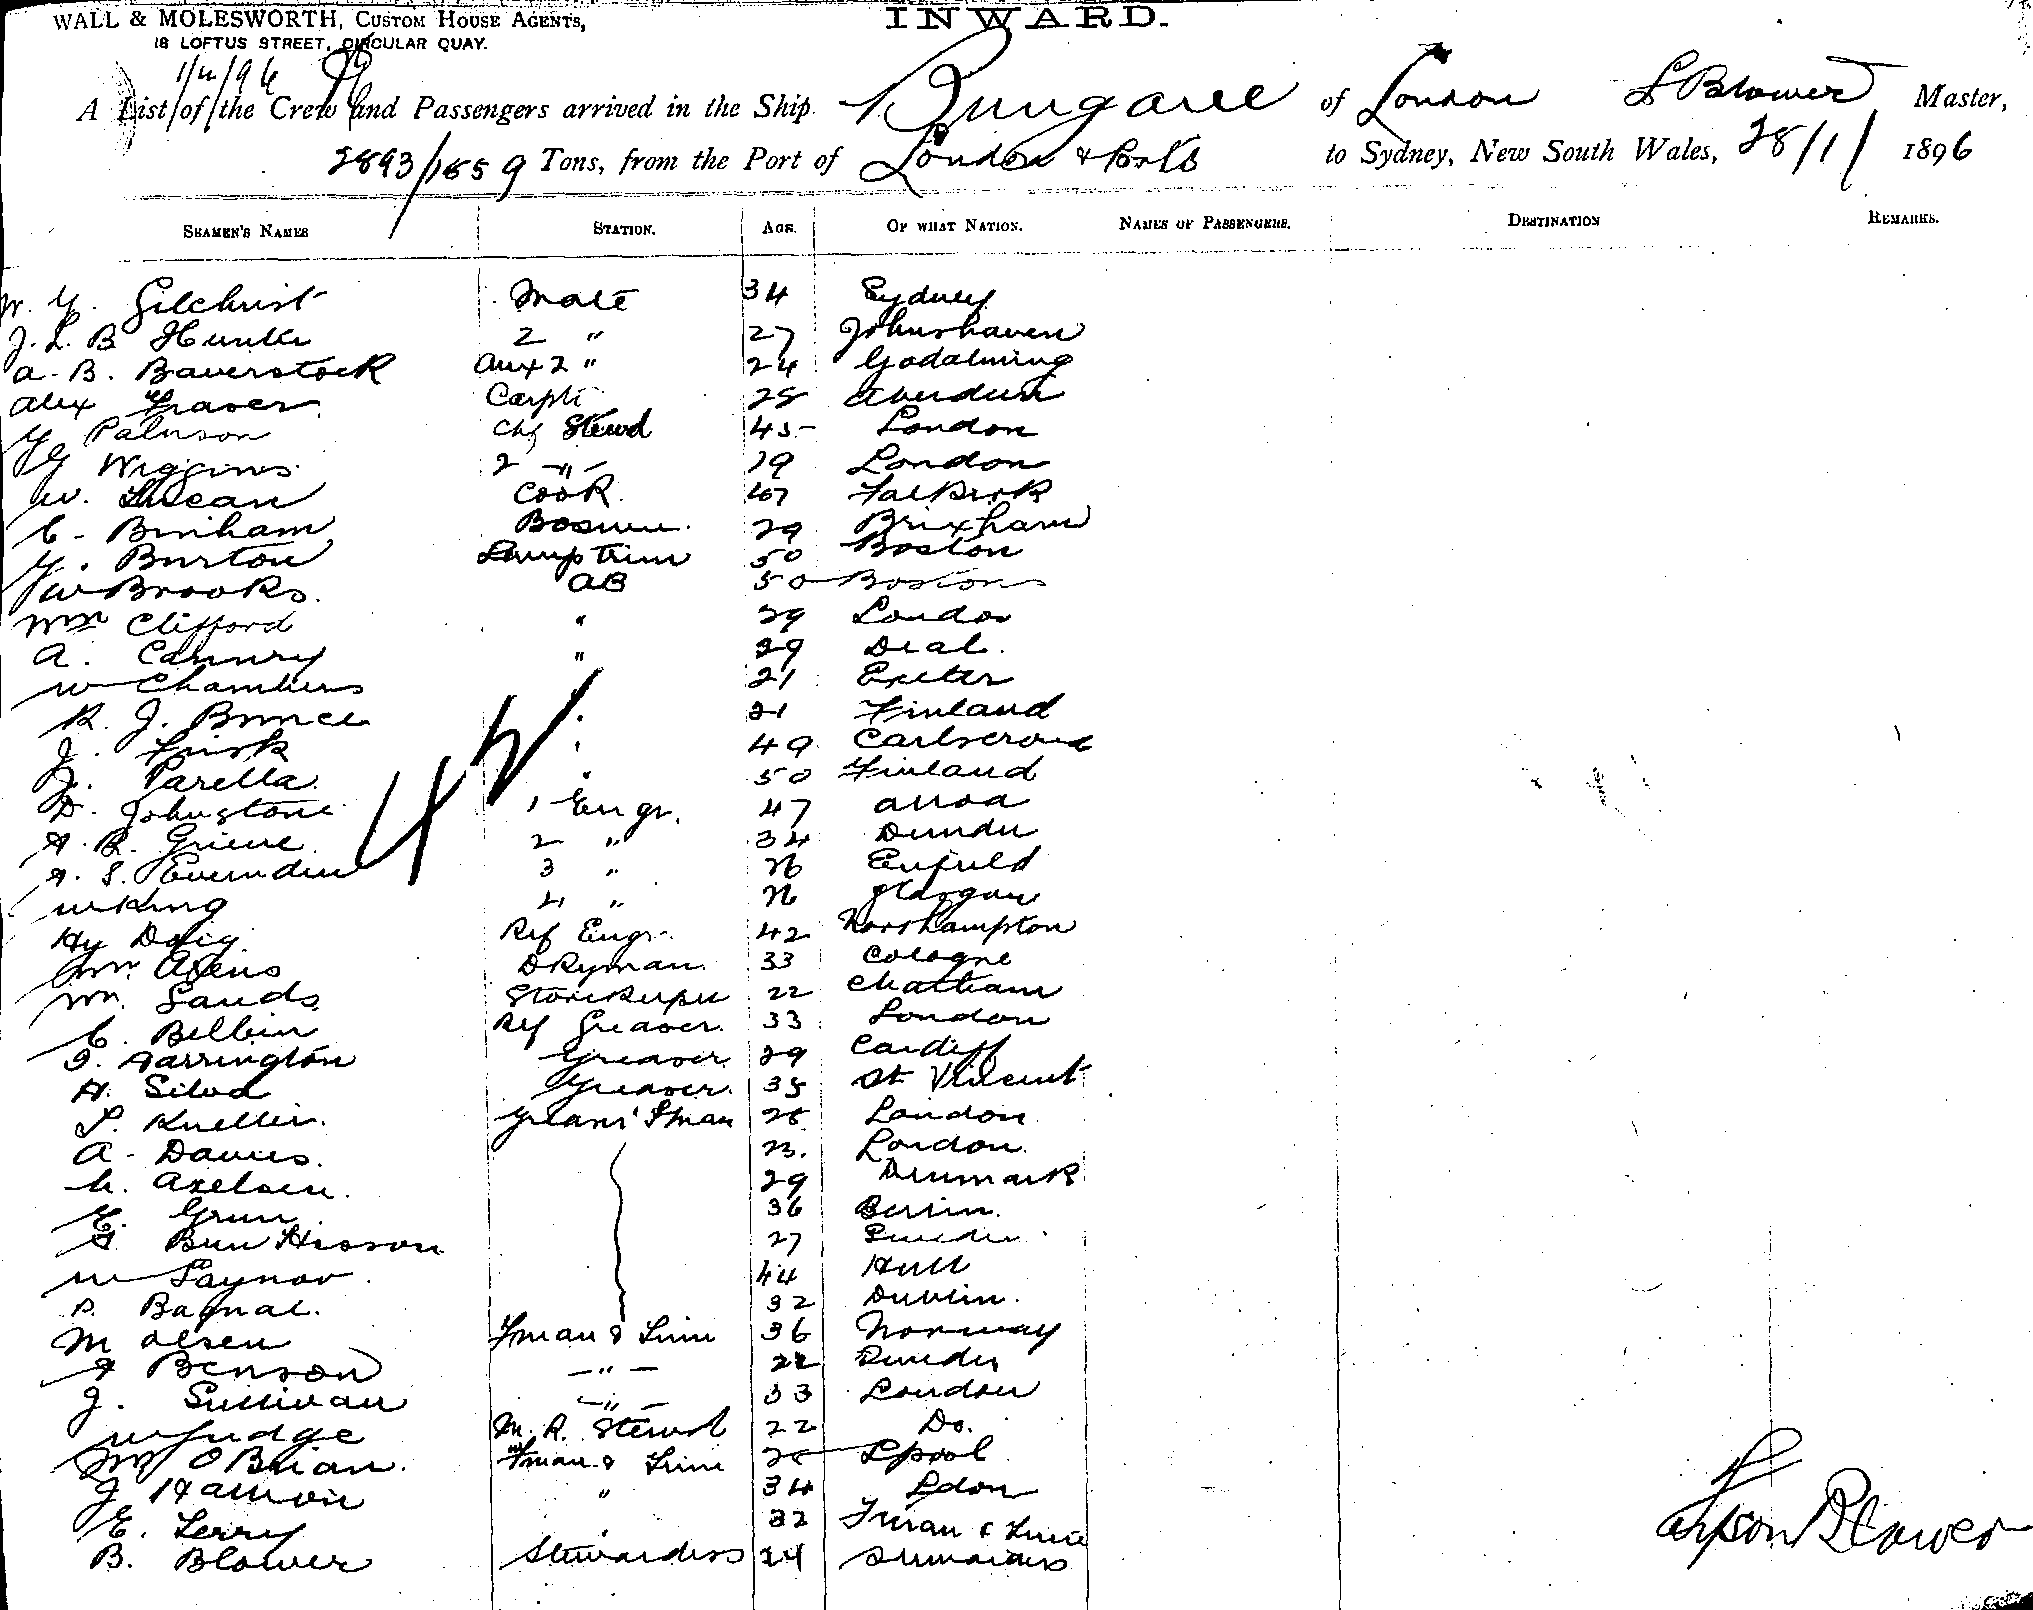 WALL & MOLESWORTH, CUSTOM HOUSE AGENTS,
18 LOFTUS STREET, CIRCULAR QUAY.
INWARD.
1/4/96
A List of the Crew and Passengers arrived in the Ship Bungaree of London L Blower Master,
2893/1859 Tons, from the Port of London & Ports to Sydney, New South Wales, 28/1/ 1896
SEAMEN'S NAMES STATION. AGE. OF WHAT NATION. NAMES OF PASSENGERS. DESTINATION REMARKS.
Gilchrist Mate 34 Sydney
J. L. B Hunter 2 " 27 Johnshaven
A. B. Baverstock Aux 2 " 24 Godalming
Alex Fraser Carptr 28 Aberdeen
Paterson Chf Stewd 45 London
Wiggins 2 -"- 29 London
W. Lucan Cook 47 Falkirk
C. Binham Bosun 29 Brixham
Burton Lamp Trim 50 Boston
W Brooks AB 50 Boston
Wm Clifford " 29 London
A. Cannry " 29 Deal.
W Chambers " 21 Exeter
R. J. Bunce 21 Finland
J. Frisk 49 Carlscrona
J. Parella 50 Finland
D. Johnstone 1 Engr. 47 Arroa
A. R. Grieve 2 " 34 Dundee
A. S. Evernden 3 " 26 Enfield
W King 4 " 26 Glasgow
Hy Doig Ref Engr 42 Northampton
Wm. Arens Dkyman 33 Cologne
Wm. Sands Storekeeper 22 Chatham
C. Belbin Ref Greaser 33 London
Farrington Greaser 29 Cardiff
A. Silva Greaser 35 St Vincent
Kneller Greasr Fman 28 London
A. Davies 23. London
Axelsen 29 Denmark
E. Grun 36 Berlin
27 Sweden
W Raynor 44 Hull
P. Bagnal. 32 Dublin.
M Olsen Fman & Trim 36 Norway
A Benson -"- 22 Sweden
J. Sullivan -"- 33 London
W Judge M. R. Stewd 22 Do.
Wm O'Brian Fman & Trim 28 Lpool
J Hamon " 34 Ldon
E. Terry " 32 Fman & Trim
B. Blower Stewardess 24 Stewardess
Blower